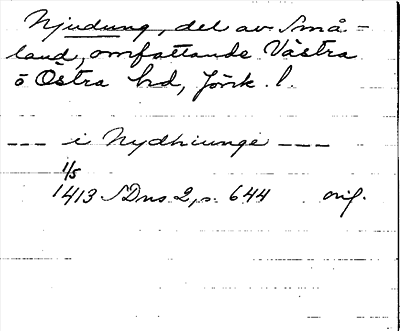 Njudung, del av Små-
land, omfattande Västra
o Östra hd, Jönk. l.
--- i Nydhiunge ---
1/5
1413 SDns 2, s. 644 orig.